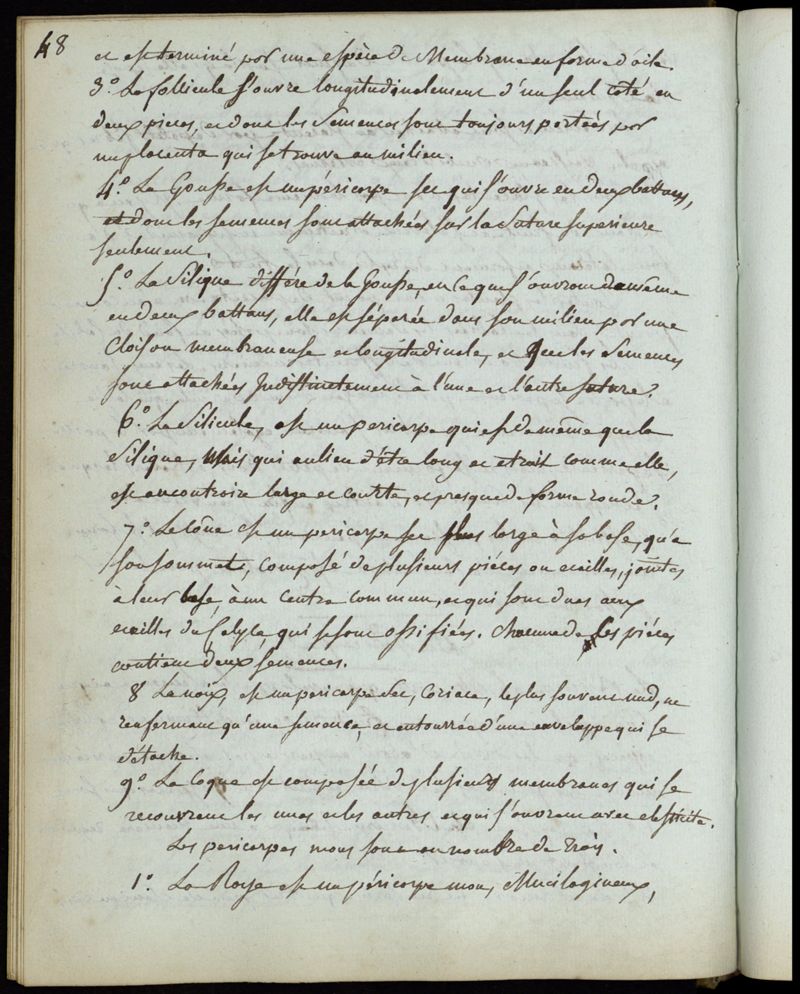 48
et est terminé par une espèce de Membrane en forme d'aile.
3.° La follicule s'ouvre longitudinalement d'un seul coté en
deux pieces, et dont les Semences sont toujours portées par
un placenta qui se trouve au milieu.
4.° La Gousse est un péricarpe sec qui s'ouvre en deux battans,
et dont les semences sont attachées sur la Suture superieure
seulement.
5.° La Silique différe de la Gousse, en ce que s'ouvrant de même
en deux battans, elle est séparée dans son milieu par une
Cloison membraneuse et longitudinale, et que les Semences
sont attachées Indistinctement à l'une et l'autre suture.
6.° La Silicule, est un pericarpe qui est de même que la
Silique, Mais qui au lieu d'être long et etroit comme elle,
est au contraire large et courte, et presque de forme ronde.
7.° Le Cône est un pericarpe sec plus large à sa base, qu'a
son sommet, composé de plusieurs piéces ou ecailles, jointes
à leur base, à un Centre commun, et qui sont dues aux
ecailles du Calyce, qui se sont ossifiées. Chacune de ses piéces
contient deux semences.
8 La noix, est un pericarpe Sec, Coriace, le plus souvent nud, ne
renfermant qu'une semence, et entourrée d'une enveloppe qui se
détache.
9.° La Coque est composée de plusieurs membranes qui se
recouvrent les unes et les autres et qui s'ouvrent avec elasticité.
Les pericarpes mous sont au nombre de Trois.
1.° La Baye est un péricarpe mou, Mucilagineux,